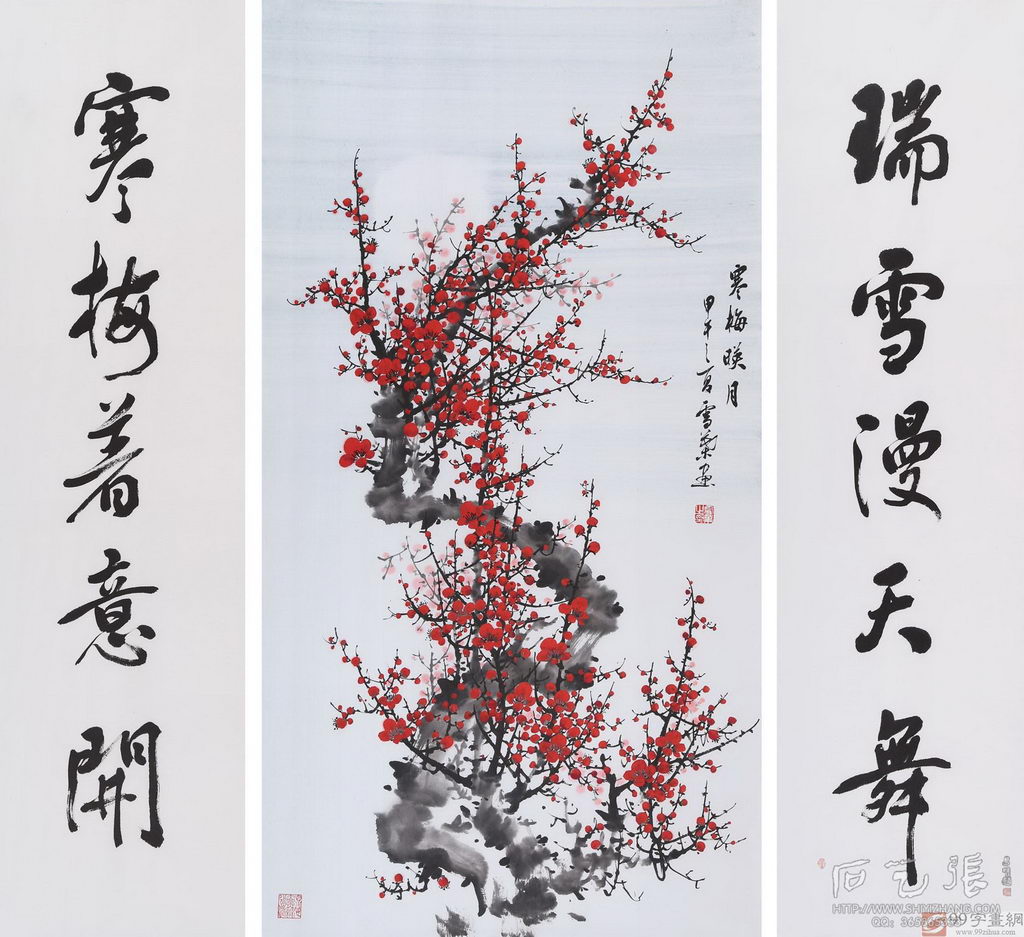 瑞雪漫天舞
寒梅映月
甲午之夏雪蘭画
寒梅着意開
石艺張
HTTP://WWW.SHIYIZHANG.COM
99字畫網
www.99zihua.com